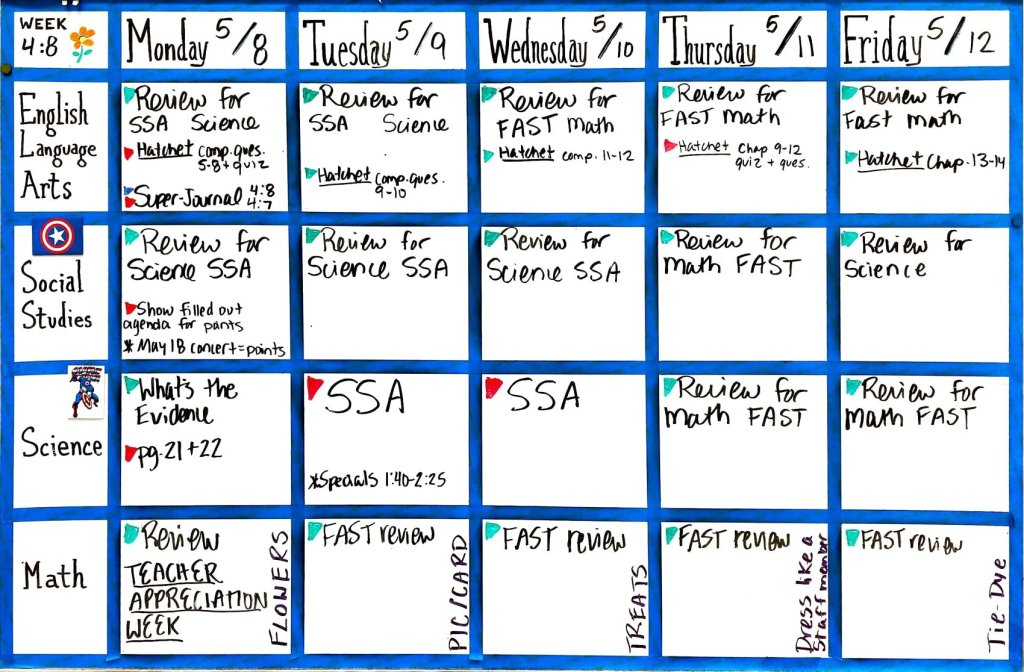 WEEK
4:8
Monday 5/8
Tuesday 5/9
Wednesday 5/10
Thursday 5/11
Friday 5/12
English
Language
Arts
Review for
SSA Science
Hatchet comp. ques.
5-8 + quiz
Super-Journal 4:8
4:7
Review for
SSA Science
Hatchet comp. ques.
9-10
Review for
FAST Math
Hatchet comp. 11-12
Review for
FAST Math
Hatchet Chap 9-12
quiz + ques.
Review for
Fast Math
Hatchet Chap. 13-14
Social
Studies
Review for
Science SSA
Show filled out
agenda for points
* May 18 concert = points
Review for
Science SSA
Review for
Science SSA
Review for
Math FAST
Review for
Science
Science
What's the
Evidence
pg. 21 + 22
SSA
*Specials 1:40-2:25
SSA
Review for
Math FAST
Review for
Math FAST
Math
Review
TEACHER
APPRECIATION
WEEK
FLOWERS
FAST review
PIC/CARD
FAST review
TREATS
FAST review
Dress like a
Staff member
FAST review
Tie-Dye